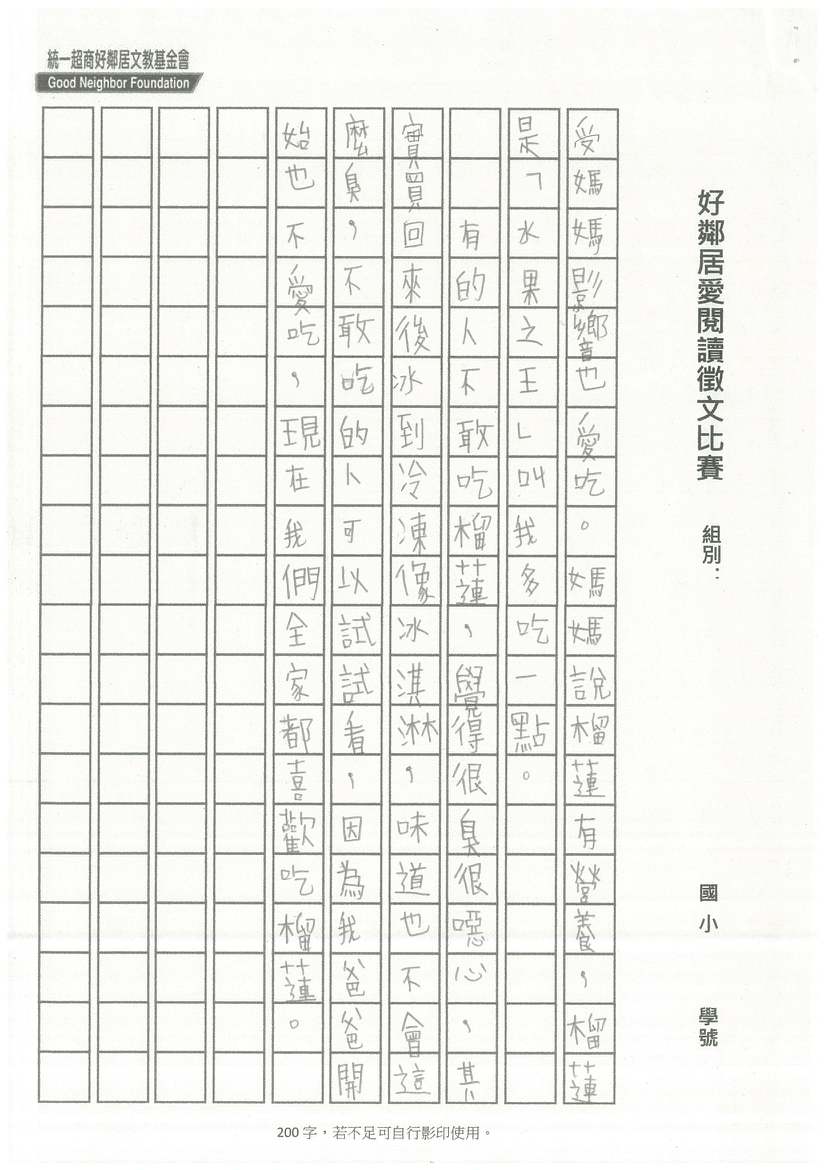 統一超商好鄰居文教基金會
Good Neighbor Foundation
好鄰居愛閱讀徵文比賽 組別： 國小 學號
受媽媽影響也愛吃。媽媽說榴蓮有營養，榴蓮
是「水果之王」叫我多吃一點。
有的人不敢吃榴蓮，覺得很臭很噁心，其
實買回來後冰到冷凍像冰淇淋，味道也不會這
麼臭，不敢吃的人可以試試看，因為我爸爸開
始也不愛吃，現在我們全家都喜歡吃榴蓮。
200 字，若不足可自行影印使用。